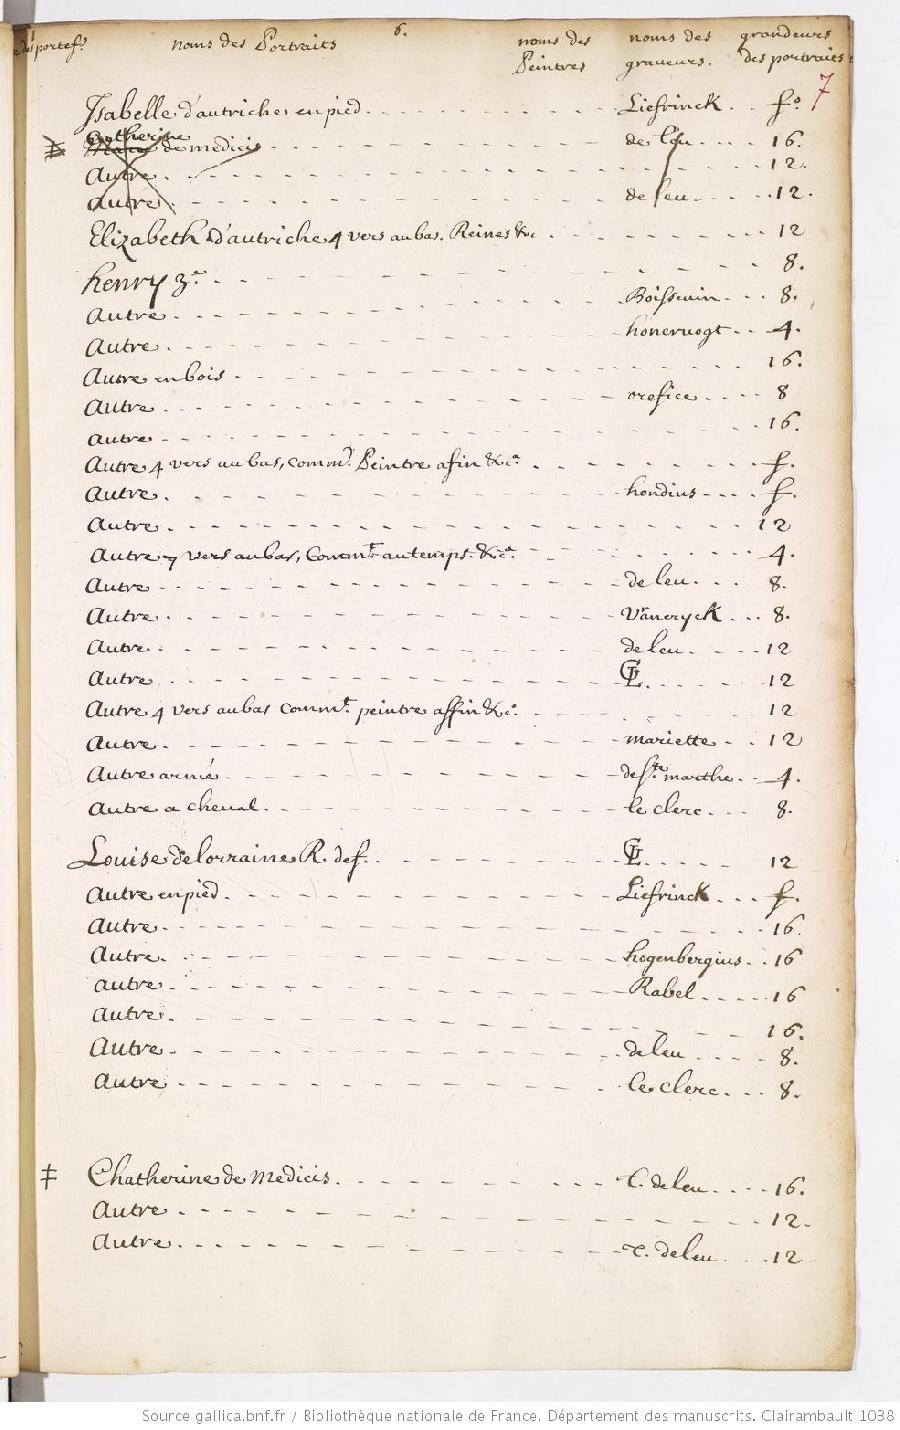 6.
portef.s noms des Portraits noms des Peintres noms des graveurs. grandeurs des portraits
7
Isabelle d'autriche en pied. Liefrinck. fo
Catherine
de medicis de leu 16.
Autre. 12.
Autre. de leu 12.
Elizabeth d'autriche 4 vers au bas. Reines &c 12
8.
henry 3.e
Autre Boissevin 8.
Autre. honervogt 4.
Autre en bois 16.
Autre orefice 8
Autre 16.
Autre 4 vers au bas, comm.t Peintre afin &c.a f.
Autre. hondius f.
Autre. 12
Autre 7 vers au bas, Comm.t au temps. &c.a 4.
Autre de leu 8.
Autre. Vaneryck 8.
Autre. de leu 12
Autre. 12
Autre 4 vers au bas comm.t peintre affin &c.a 12
Autre. mariette 12
Autre armé de ste marthe 4.
Autre a cheval. le clerc 8.
Louise de lorraine R. de f. 12
Autre en pied. Liefrinck f.
Autre. 16.
Autre. hogenbergius 16
Autre. Rabel 16
Autre. 16.
Autre. de leu 8.
Autre. le clerc 8.
‡ Chatherine de Medicis. T. de leu 16.
Autre. 12.
Autre. T. de leu 12
Source gallica.bnf.fr / Bibliothèque nationale de France. Département des manuscrits. Clairambault 1038